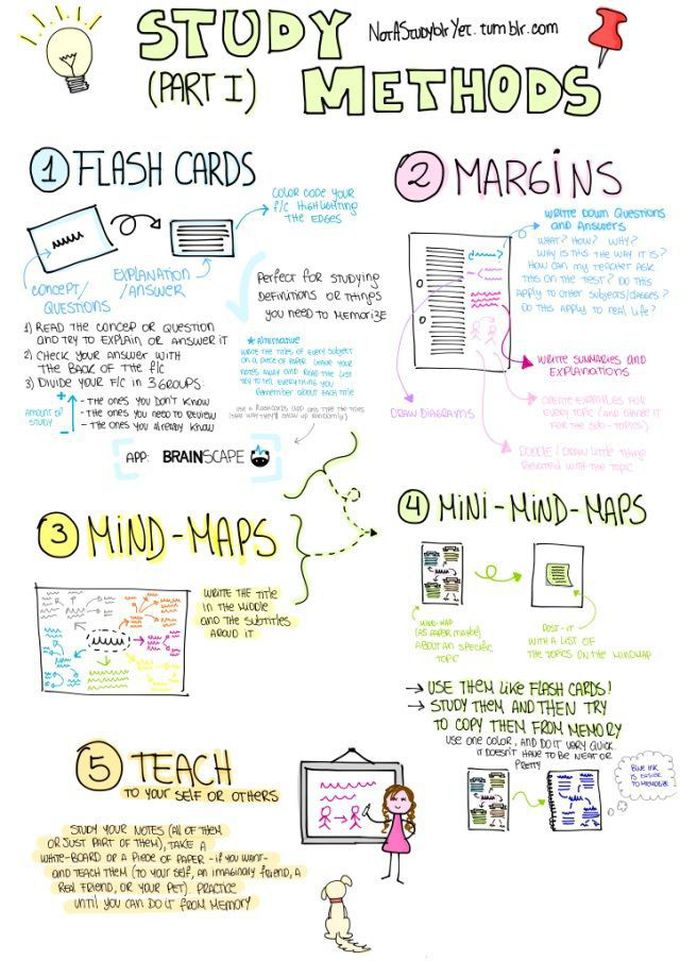 STUDY
NotAStudyblrYet.tumblr.com
(PART I) METHODS
1 FLASH CARDS
COLOR CODE YOUR
F/C HIGHLIGHTING
THE EDGES
CONCEPT/
QUESTIONS
EXPLANATION
/ANSWER
Perfect for studying
definitions or things
you need to memorize
1) READ THE CONCEP OR QUESTION
AND TRY TO EXPLAIN OR ANSWER IT
2) CHECK YOUR ANSWER WITH
THE BACK OF THE F/C
3) DIVIDE YOUR F/C IN 3 GROUPS:
- THE ONES YOU DON'T KNOW
- THE ONES YOU NEED TO REVIEW
- THE ONES YOU ALREADY KNOW
+
AMOUNT OF
STUDY
-
* Alternative
WRITE THE TITLES OF EVERY SUBJECT
ON A PIECE OF PAPER. LEAVE YOUR
NOTES AWAY AND READ THE LIST
TRY TO TELL EVERYTHING YOU
REMEMBER ABOUT EACH TITLE
USE A FLASHCARDS APP AND TYPE THE TITLES
(THAT WAY THEY'LL SHOW UP RANDOMLY)
APP: BRAINSCAPE
2 MARGINS
WRITE DOWN QUESTIONS
AND ANSWERS
WHAT? HOW? WHY?
WHY IS THIS THE WAY IT IS?
HOW CAN MY TEACHER ASK
THIS ON THE TEST? DO THIS
APPLY TO OTHER SUBJECTS/CLASSES?
DO THIS APPLY TO REAL LIFE?
WRITE SUMMARIES AND
EXPLANATIONS
DRAW DIAGRAMS
CREATE EXAMPLES FOR
EVERY TOPIC (AND
FOR THE SUB-TOPICS)
DOODLE / DRAW LITTLE THING
RELATED WITH THE TOPIC
3 MIND-MAPS
WRITE THE TITLE
IN THE MIDDLE
AND THE SUBTITLES
AROUD IT
4 MINI-MIND-MAPS
MIND-MAP
(A5 PAPER MAYBE)
ABOUT AN SPECIFIC
TOPIC
POST-IT
WITH A LIST OF
THE TOPICS ON THE MINDMAP
→ USE THEM LIKE FLASH CARDS!
→ STUDY THEM AND THEN TRY
TO COPY THEM FROM MEMORY
USE ONE COLOR, AND DO IT VERY QUICK.
IT DOESN'T HAVE TO BE NEAT OR
PRETTY
BLUE INK
IS EASIER
TO MEMORIZE
5 TEACH
TO YOUR SELF OR OTHERS
STUDY YOUR NOTES (ALL OF THEM
OR JUST PART OF THEM), TAKE A
WHITE-BOARD OR A PIECE OF PAPER - IF YOU WANT-
AND TEACH THEM (TO YOUR SELF, AN IMAGINARY FRIEND, A
REAL FRIEND, OR YOUR PET). PRACTICE
UNTIL YOU CAN DO IT FROM MEMORY